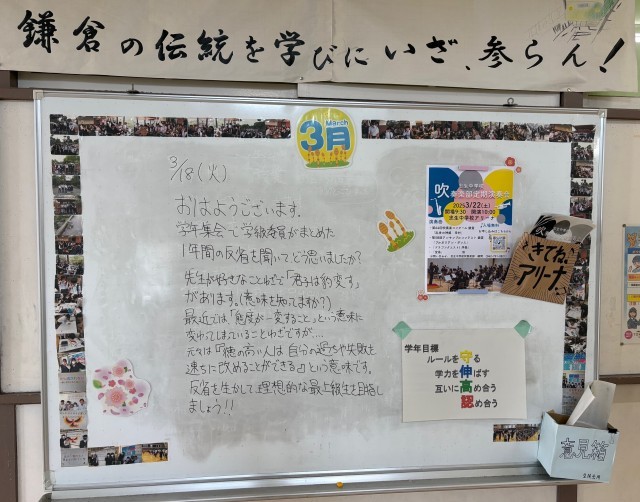 鎌倉の伝統を学びにいざ、参らん!
March
3月
3/18(火)
おはようございます。
学年集会で学級委員がまとめた
1年間の反省を聞いてどう思いましたか?
先生が好きなことばで「君子は豹変す」
があります。(意味を知ってますか?)
最近では「態度が一変すること」という意味に
変わってしまっていることわざですが…
元々は「徳の高い人は自分の過ちや失敗を
速ちに改めることができる」という意味です。
反省を生かして理想的な最上級生を目指し
ましょう!!
吹奏楽部定期演奏会
2025 3/22(土)
開場9:30 開演10:00
志生中学校アリーナ
きてね!
アリーナ
学年目標
ルールを守る
学力を伸ばす
互いに高め合う
認め合う
意見箱